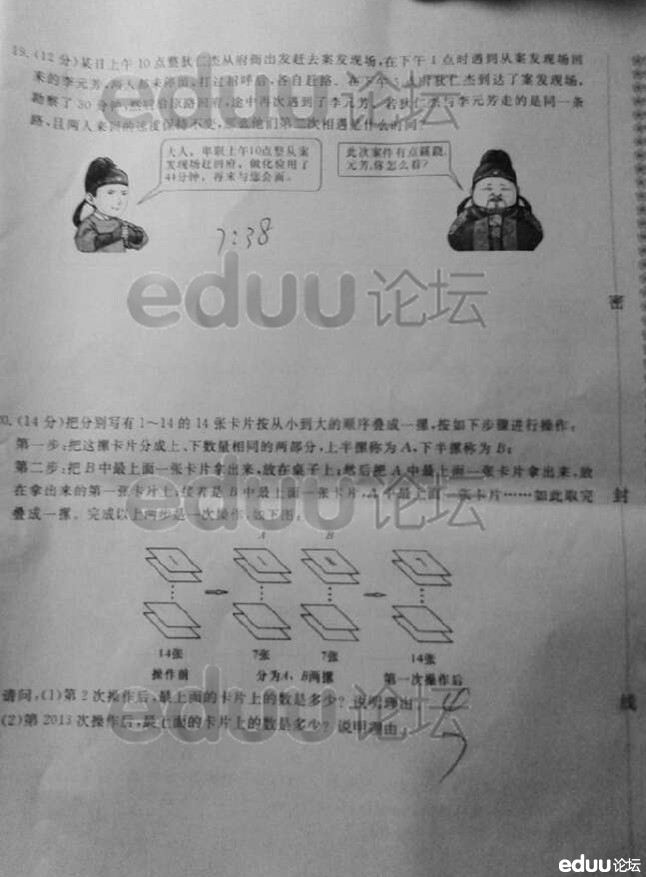 19.(12分)某日上午10点整狄仁杰从府衙出发赶去案发现场,在下午1点时遇到从案发现场回
来的李元芳,两人都未停留,打过招呼后,各自赶路.
狄仁杰到达了案发现场,
勘察了30分钟,然后沿原路回府,途中再次遇到了李元芳.若狄仁杰与李元芳走的是同一条
路,且两人来回的速度保持不变,那么他们第二次相遇是什么时间?
大人,卑职上午10点整从案
发现场赶回府,做化验用了
44分钟,再来与您会面。
此次案件有点蹊跷,
元芳,你怎么看?
7:38
eduu论坛
密
20.(14分)把分别写有1~14的14张卡片按从小到大的顺序叠成一摞,按如下步骤进行操作:
第一步:把这摞卡片分成上、下数量相同的两部分,上半摞称为A,下半摞称为B;
第二步:把B中最上面一张卡片拿出来,放在桌子上;然后把A中最上面一张卡片拿出来,放
在拿出来的第一张卡片上;接着是B中最上面一张卡片,A中最上面一张卡片……如此取完
叠成一摞。完成以上两步是一次操作,如下图:
封
eduu论坛
A B
14张 7张 7张 14张
操作前 分为A、B两摞 第一次操作后
请问,(1)第2次操作后,最上面的卡片上的数是多少?说明理由.
(2)第2013次操作后,最上面的卡片上的数是多少?说明理由.
线
eduu论坛
eduu论坛